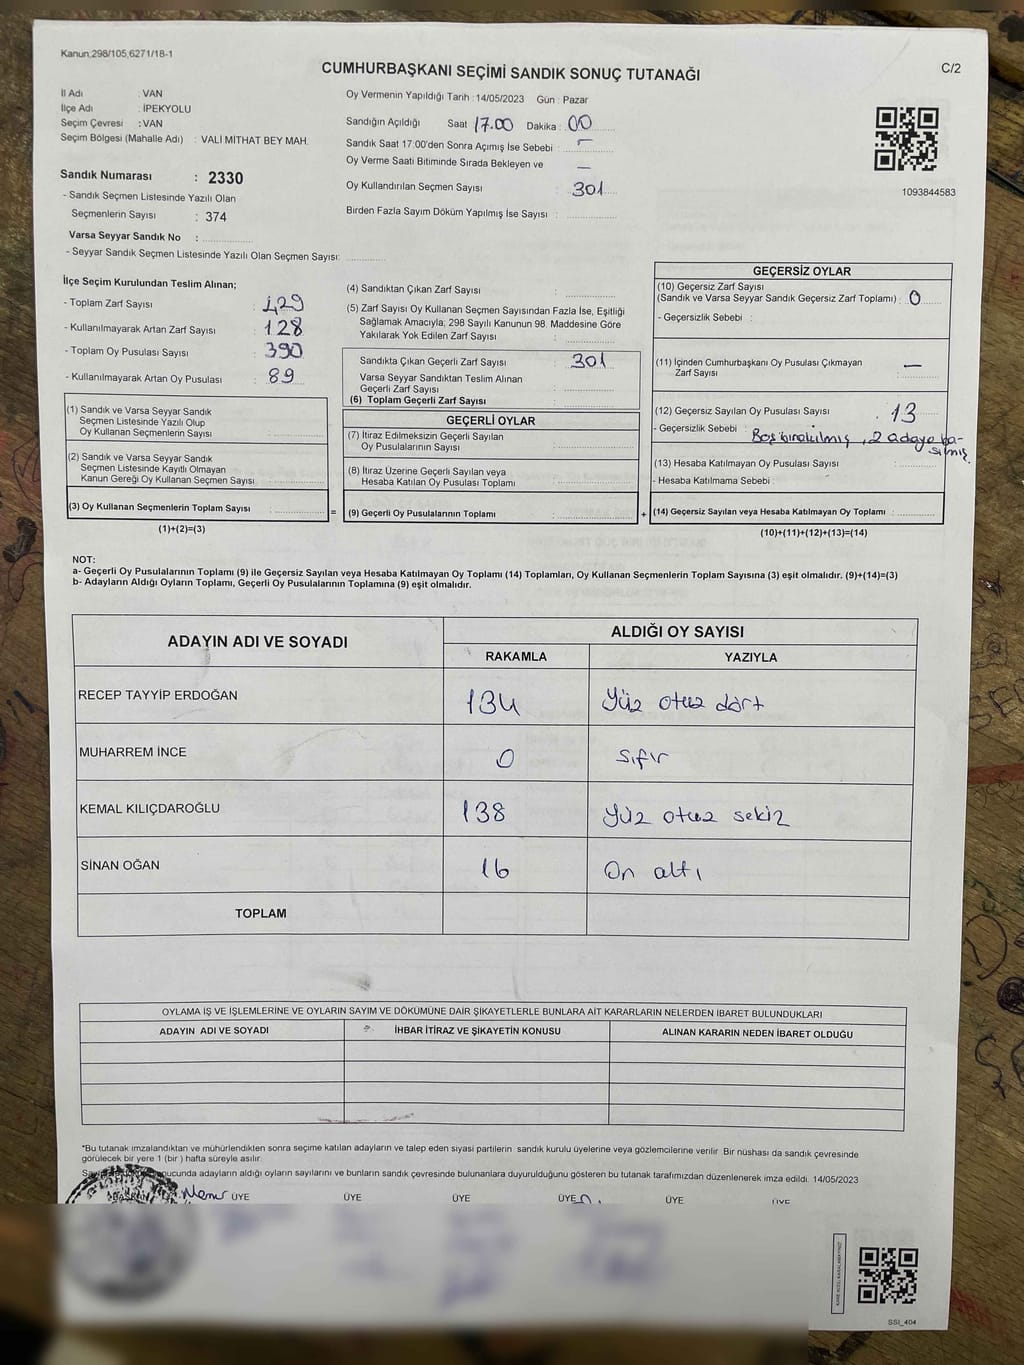 Kanun,298/105,6271/18-1
CUMHURBAŞKANI SEÇİMİ SANDIK SONUÇ TUTANAĞI
C/2
İl Adı : VAN
İlçe Adı : İPEKYOLU
Seçim Çevresi : VAN
Seçim Bölgesi (Mahalle Adı) : VALİ MİTHAT BEY MAH.
Sandık Numarası : 2330
- Sandık Seçmen Listesinde Yazılı Olan
Seçmenlerin Sayısı : 374
Varsa Seyyar Sandık No :
- Seyyar Sandık Seçmen Listesinde Yazılı Olan Seçmen Sayısı:
Oy Vermenin Yapıldığı Tarih : 14/05/2023 Gün : Pazar
Sandığın Açıldığı Saat 17.00 Dakika : 00
Sandık Saat 17:00'den Sonra Açımış İse Sebebi : -
Oy Verme Saati Bitiminde Sırada Bekleyen ve
Oy Kullandırılan Seçmen Sayısı : 301
Birden Fazla Sayım Döküm Yapılmış İse Sayısı :
1093844583
İlçe Seçim Kurulundan Teslim Alınan;
- Toplam Zarf Sayısı : 429
- Kullanılmayarak Artan Zarf Sayısı : 128
- Toplam Oy Pusulası Sayısı : 390
- Kullanılmayarak Artan Oy Pusulası : 89
(1) Sandık ve Varsa Seyyar Sandık
Seçmen Listesinde Yazılı Olup
Oy Kullanan Seçmenlerin Sayısı
(2) Sandık ve Varsa Seyyar Sandık
Seçmen Listesinde Kayıtlı Olmayan
Kanun Gereği Oy Kullanan Seçmen Sayısı
(3) Oy Kullanan Seçmenlerin Toplam Sayısı
(1)+(2)=(3)
=
(4) Sandıktan Çıkan Zarf Sayısı :
(5) Zarf Sayısı Oy Kullanan Seçmen Sayısından Fazla İse, Eşitliği
Sağlamak Amacıyla; 298 Sayılı Kanunun 98. Maddesine Göre
Yakılarak Yok Edilen Zarf Sayısı :
Sandıkta Çıkan Geçerli Zarf Sayısı : 301
Varsa Seyyar Sandıktan Teslim Alınan
Geçerli Zarf Sayısı :
(6) Toplam Geçerli Zarf Sayısı :
GEÇERLİ OYLAR
(7) İtiraz Edilmeksizin Geçerli Sayılan
Oy Pusulalarının Sayısı :
(8) İtiraz Üzerine Geçerli Sayılan veya
Hesaba Katılan Oy Pusulası Toplamı :
(9) Geçerli Oy Pusulalarının Toplamı :
+
GEÇERSİZ OYLAR
(10) Geçersiz Zarf Sayısı
(Sandık ve Varsa Seyyar Sandık Geçersiz Zarf Toplamı) : 0
- Geçersizlik Sebebi :
(11) İçinden Cumhurbaşkanı Oy Pusulası Çıkmayan
Zarf Sayısı : —
(12) Geçersiz Sayılan Oy Pusulası Sayısı : 13
- Geçersizlik Sebebi : Boş bırakılmış, 2 adaya ba-
sılmış.
(13) Hesaba Katılmayan Oy Pusulası Sayısı :
- Hesaba Katılmama Sebebi :
(14) Geçersiz Sayılan veya Hesaba Katılmayan Oy Toplamı :
(10)+(11)+(12)+(13)=(14)
NOT:
a- Geçerli Oy Pusulalarının Toplamı (9) ile Geçersiz Sayılan veya Hesaba Katılmayan Oy Toplamı (14) Toplamları, Oy Kullanan Seçmenlerin Toplam Sayısına (3) eşit olmalıdır. (9)+(14)=(3)
b- Adayların Aldığı Oyların Toplamı, Geçerli Oy Pusulalarının Toplamına (9) eşit olmalıdır.
ADAYIN ADI VE SOYADI ALDIĞI OY SAYISI
RAKAMLA YAZIYLA
RECEP TAYYİP ERDOĞAN 134 Yüz otuz dört
MUHARREM İNCE 0 sıfır
KEMAL KILIÇDAROĞLU 138 Yüz otuz sekiz
SİNAN OĞAN 16 On altı
TOPLAM
OYLAMA İŞ VE İŞLEMLERİNE VE OYLARIN SAYIM VE DÖKÜMÜNE DAİR ŞİKAYETLERLE BUNLARA AİT KARARLARIN NELERDEN İBARET BULUNDUKLARI
ADAYIN ADI VE SOYADI İHBAR İTİRAZ VE ŞİKAYETİN KONUSU ALINAN KARARIN NEDEN İBARET OLDUĞU
*Bu tutanak imzalandıktan ve mühürlendikten sonra seçime katılan adayların ve talep eden siyasi partilerin sandık kurulu üyelerine veya gözlemcilerine verilir Bir nüshası da sandık çevresinde
görülecek bir yere 1 (bir ) hafta süreyle asılır.
adayların aldığı oyların sayılarını ve bunların sandık çevresinde bulunanlara duyurulduğunu gösteren bu tutanak tarafımızdan düzenlenerek imza edildi. 14/05/2023
BAŞKAN ÜYE ÜYE ÜYE ÜYE ÜYE ÜYE
SSI_404